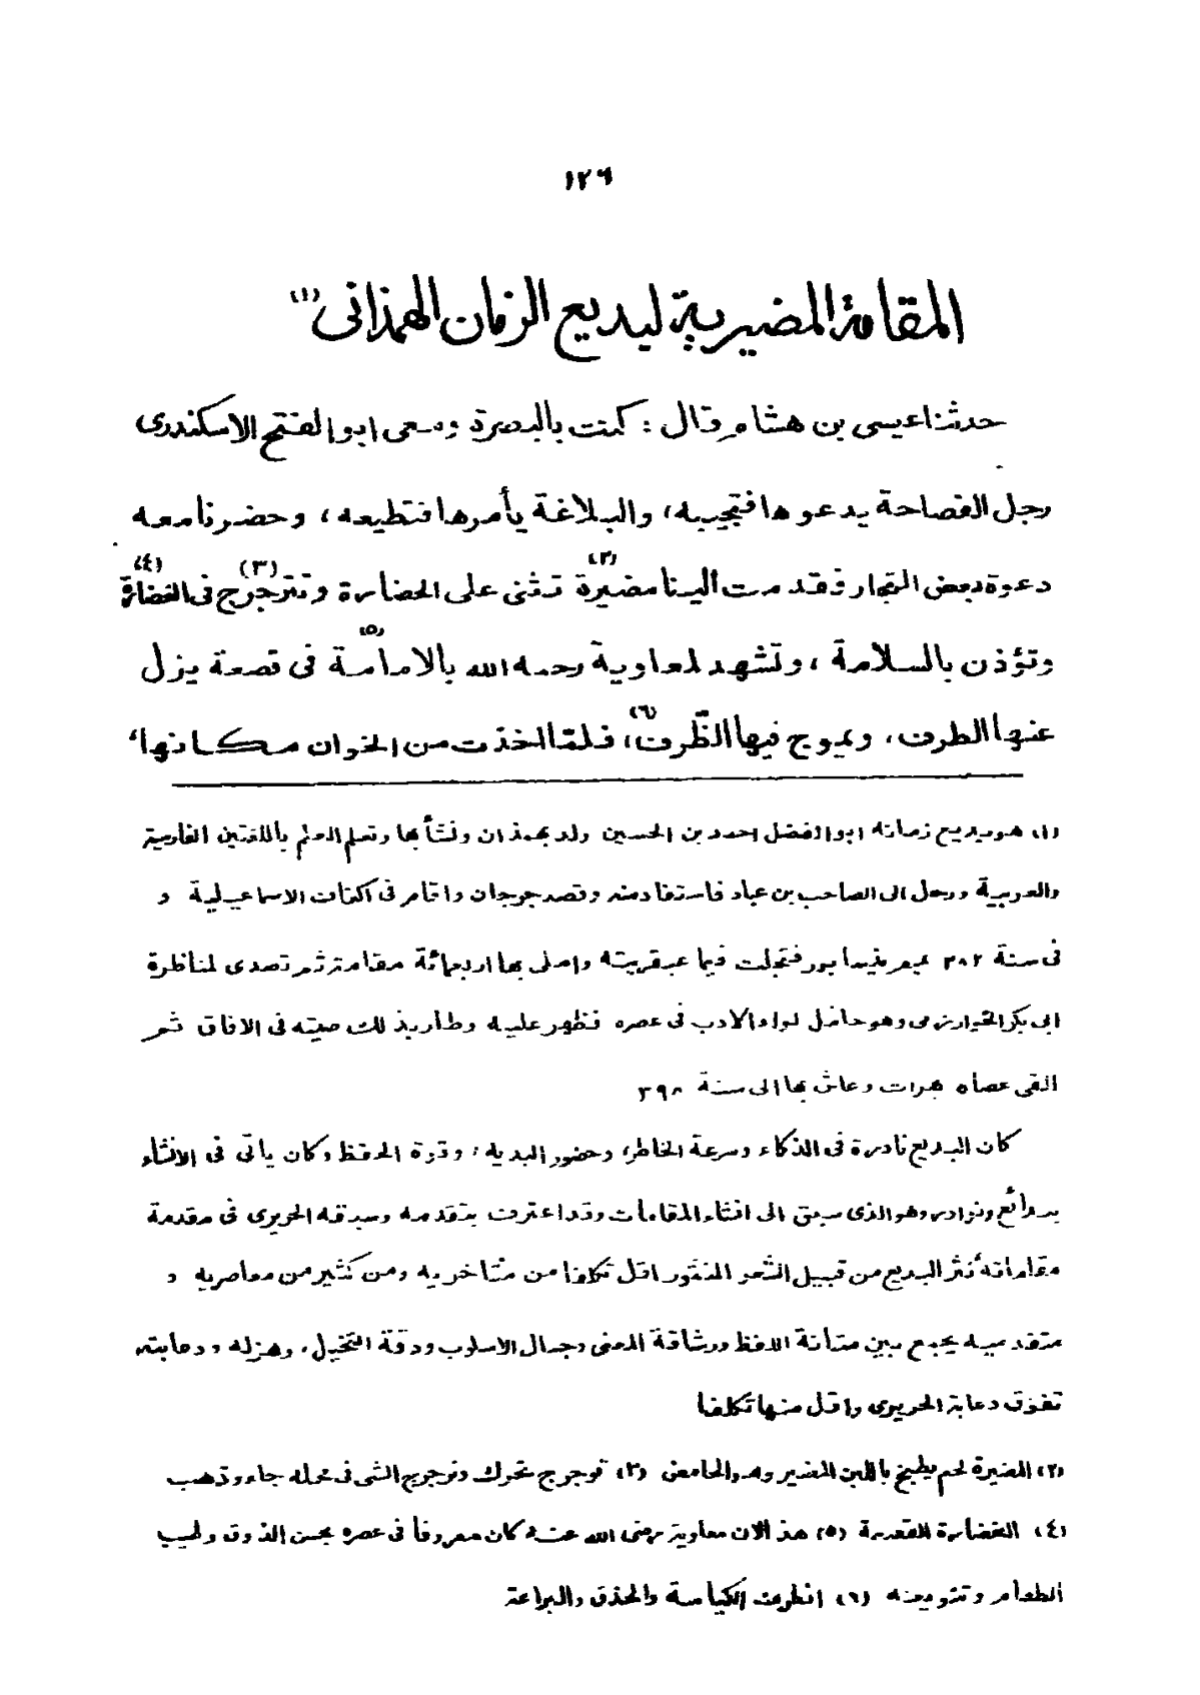 ١٢٦
المقامة المضيرية لبديع الزمان الهمذانى (١)
حدثنا عيسى بن هشام قال : كنت بالبصرة ومعى ابوالفتح الاسكندرى
رجل الفصاحة يدعوها فتجيبه، والبلاغة يأمرها فتطيعه، وحضرنا معه
دعوة بعض التجار فقدمت الينا مضيرة (٢) تثنى على الحضارة وتترجرج (٣) فى الغضارة (٤)
وتؤذن بالسلامة، وتشهد لمعاوية رحمه الله بالامامة (٥) فى قصعة يزل
عنها الطرف، ويموج فيها الظّرف (٦)، فلمّا اخذت من الخوان مكانها،
(١) هو بديع زمانه ابوالفضل احمد بن الحسين ولد بهمذان ونشأ بها وتعلم العلم باللغتين الفارسية
والعربية ورحل الى الصاحب بن عباد فاستفاد منه وقصد جرجان واقام فى اكناف الاسماعيلية و
فى سنة ٣٨٢ يمم نيسابور فتجلت فيها عبقريته واملى بها اربعمائة مقامة ثم تصدى لمناظرة
ابى بكر الخوارزمى وهو حامل لواء الادب فى عصره فظهر عليه وطار بذلك صيته فى الافاق ثم
القى عصاه بهرات وعاش بها الى سنة ٣٩٨
كان البديع نادرة فى الذكاء وسرعة الخاطر، وحضور البديهة، وقوة الحفظ وكان ياتى فى الانشاء
ببدائع ونوادر وهوالذى سبق الى انشاء المقامات وقد اعترف بتقدمه وسبقه الحريرى فى مقدمة
مقاماته نثر البديع من قبيل الشعر المنثور اقل تكلفا من متاخريه ومن كثير من معاصريه و
متقدميه يجمع بين متانة اللفظ ورشاقة المعنى وجمال الاسلوب ودقة التخيل، وهزله ودعابته
تفوق دعابة الحريرى واقل منها تكلفا
(٢) المضيرة لحم يطبخ باللبن المضير وهو الحامض (٣) ترجرج تحرك وترجرج الشى فى محله جاء وذهب
(٤) الغضارة القصعة (٥) هذا لان معاوية رضى الله عنه كان معروفا فى عصره بحسن الذوق وطيب
الطعام وتنويعه (٦) الظرف الكياسة والحذق والبراعة